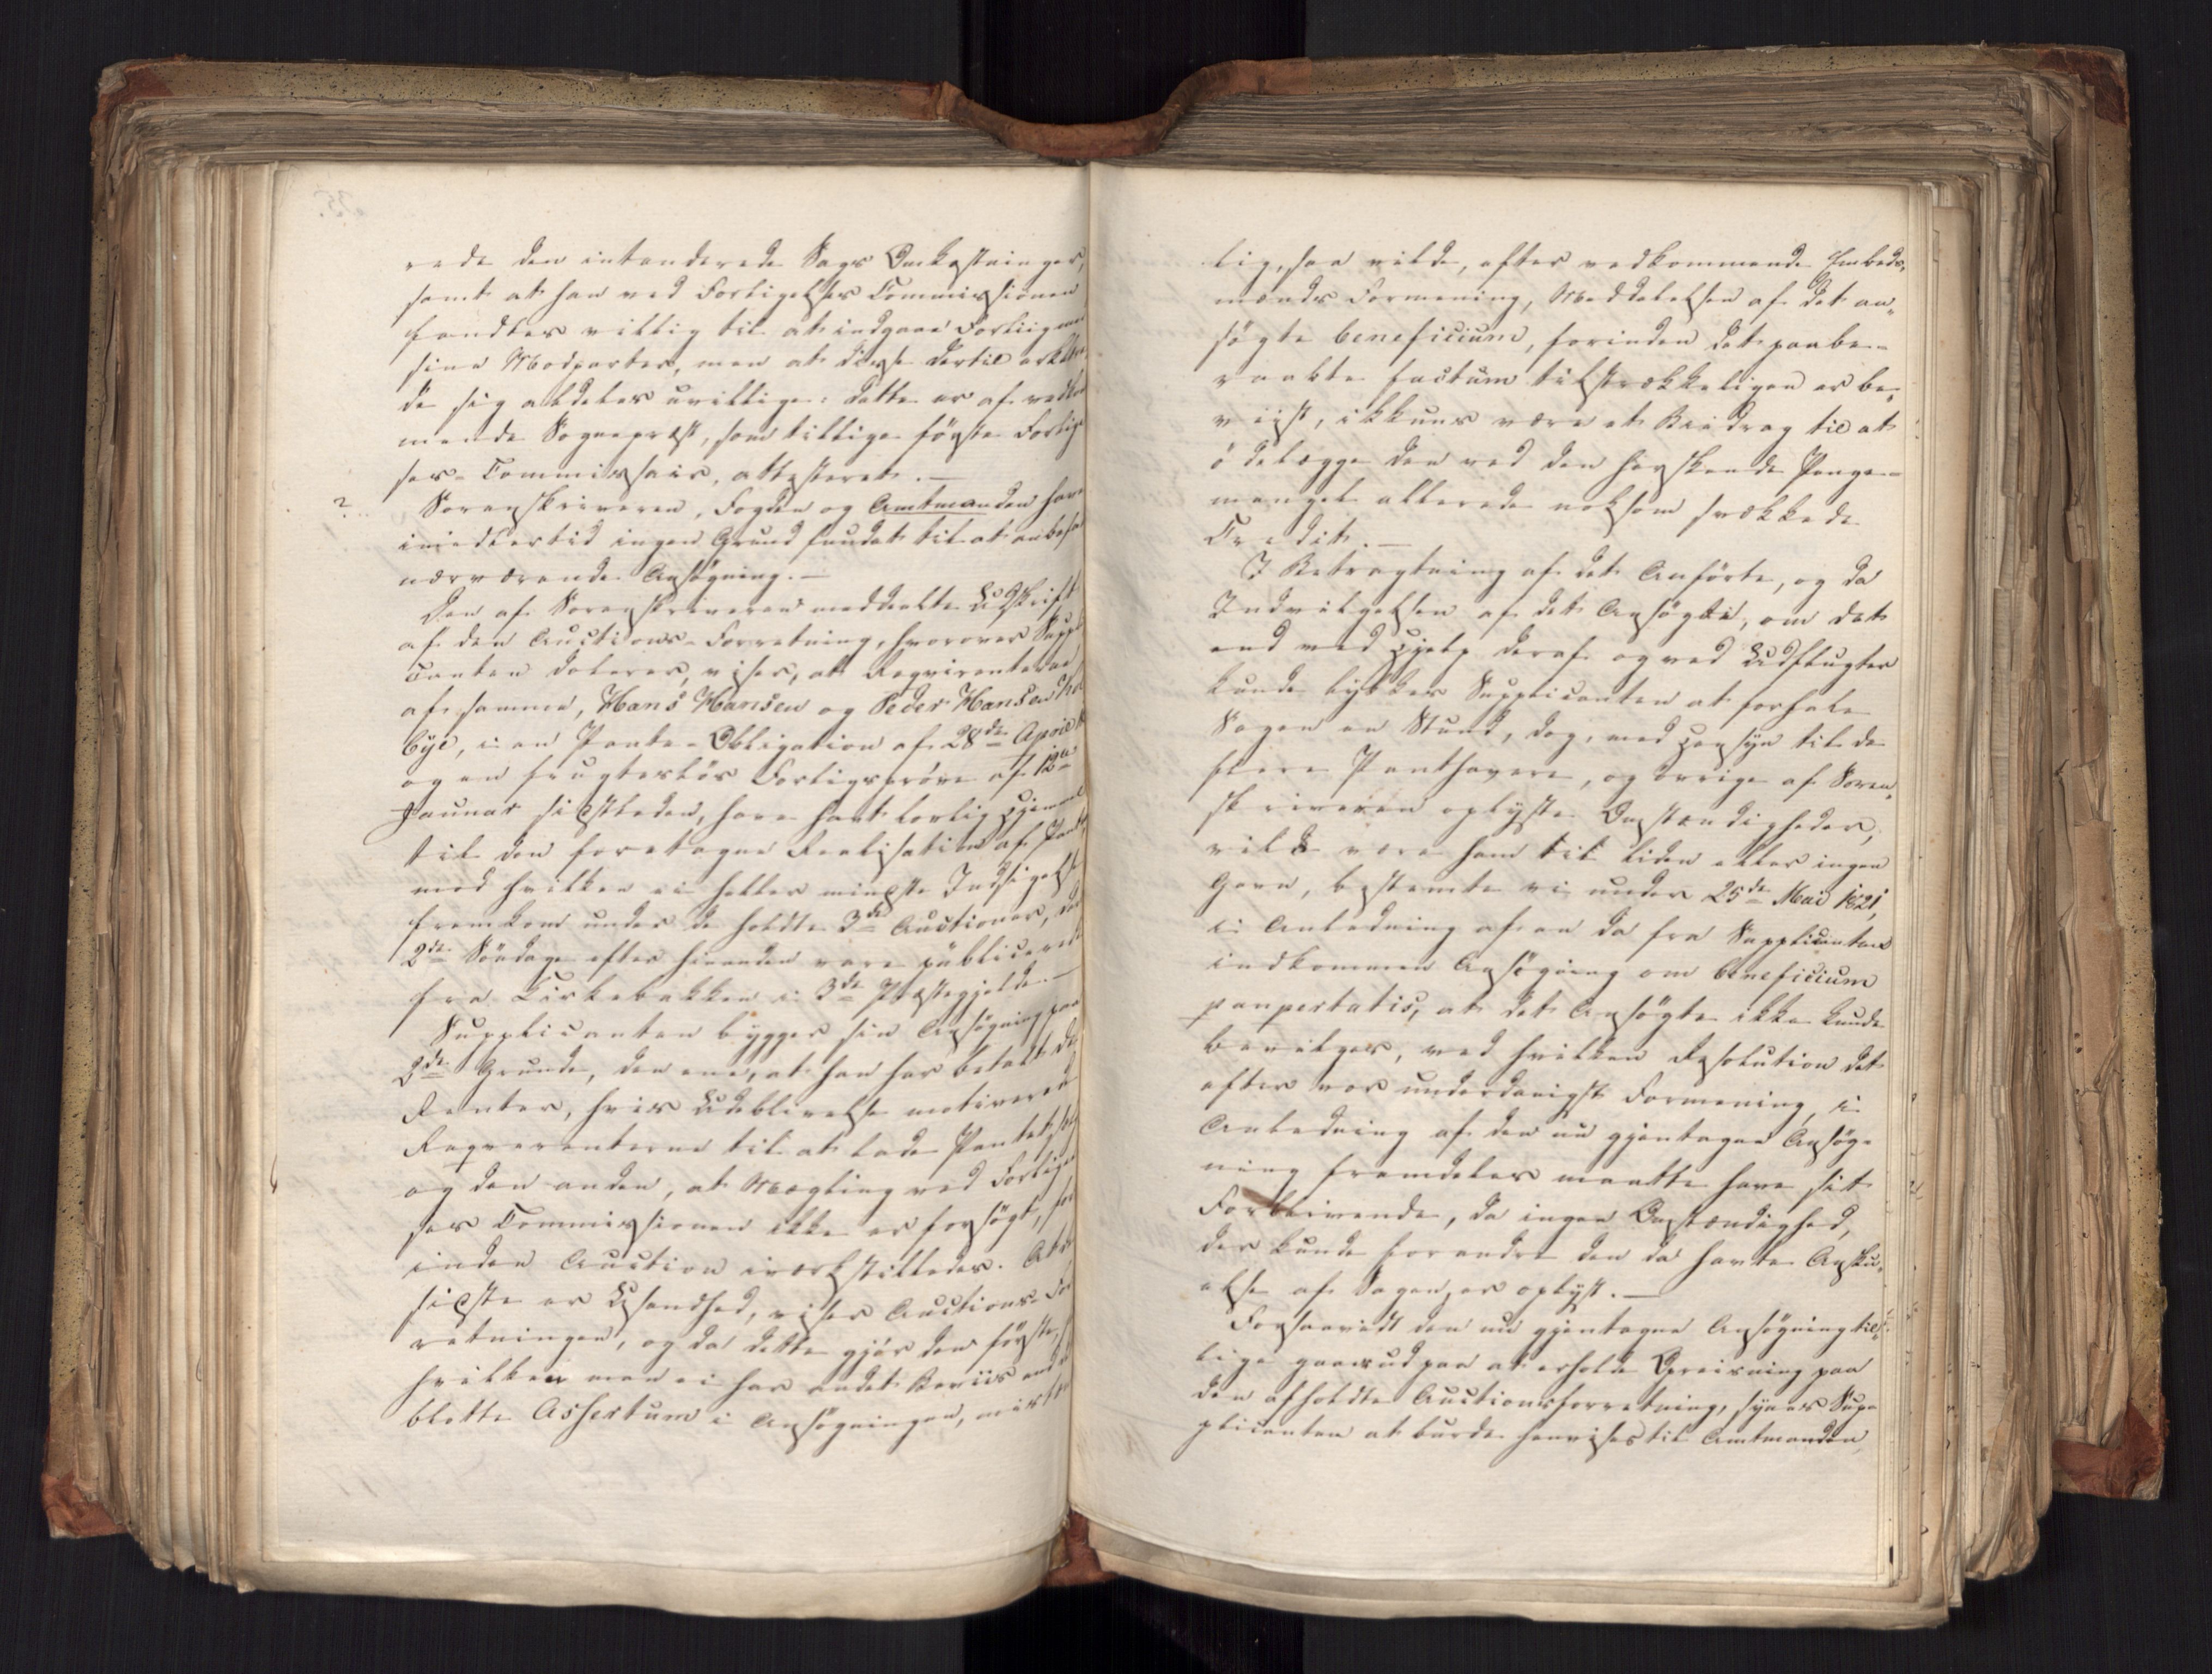 rede den intenderede Sags Omkostninger,
samt at han ved Forligelses Commissionen
fandtes villig til at indgaae Forliig med
sine Modparter, men at disse dertil erklære
de sig aldeles uvillige: dette er af vedkom
mende Sognepræst, som tillige første Forligel
ses-Commissair, attesteret.—
? Sorenskriveren, Fogden og Amtmanden have
imidlertid ingen Grund fundet til at anbefale
nærværende Ansøgning.—
Den af Sorenskriveren meddeelte Udskrift
af den Auctions-Forretning, hvorover Suppli
canten dolerer, viser, at Requirenterne
af samme, Hans Hansen og Peder Hansen
bye, i en Pante-Obligation af 28de April
og en frugtesløs Forligsprøve af 12te
Januar sidstleden, have havt lovlig Hjemmel
til den foretagne Realisation af Pantet,
mod hvilken ei heller mindste Indsigelse
fremkom under de holdte 3de Auctioner, der
2de Søndage efter hinanden vare publicerede
fra Kirkebakken i 3de Præstegjelde.—
Supplicanten bygger sin Ansøgning paa
2de Grunde, den ene, at han har betalt de
Renter, hvis Udeblivelse motiverede
Requirenterne til at lade Pantet
og den anden, at Mægling ved Forligel
ses Commissionen ikke er forsøgt, for
inden Auction iværkstilledes. At det
sidste er Usandhed, viser Auctions-For
retningen, og da dette gjør den første,
hvilken man ei har andet Beviis end det
blotte Assertum i Ansøgningen,
lig, saa vilde, efter vedkommende Embeds,
mænds Formening, Meddelelsen af det an„
søgte beneficium, forinden det paabe-
raabte factum tilstrækkeligen er be„
viist, ikkuns være et Bidrag til at
ødelægge den ved den herskende Penge-
mangel allerede noksom svækkede
Credit.—
I Betragtning af det Anførte, og da
Indvilgelsen af det Ansøgte, om det
end ved Hjelp deraf og ved Udflugter
kunde lykkes Supplicanten at forhale
Sagen en Stund, dog, med Hensyn til de
flere Panthavere, og øvrige af Soren„
skriveren oplyste Omstændigheder,
vilde være ham til liden eller ingen
Gavn, bestemte vi under 25de Mai 1821,
i Anledning af en da fra Supplicanten
indkommen Ansøgning om beneficium
paupertatis, at det Ansøgte ikke kunde
bevilges, ved hvilken Resolution det
efter vor underdanigst Formening, i
Anledning af den nu gjentagne Ansøg-
ning fremdeles maatte have sit
Forblivende, da ingen Omstændighed,
der kunde forandre den da havte Ansku„
else af Sagen, er oplyst.—
Forsaavidt den nu gjentagne Ansøgning til„
lige gaaer ud paa at erholde Opreisning paa
den afholdte Auctionsforretning, synes Sup-
plicanten at burde henvises til Amtmanden,